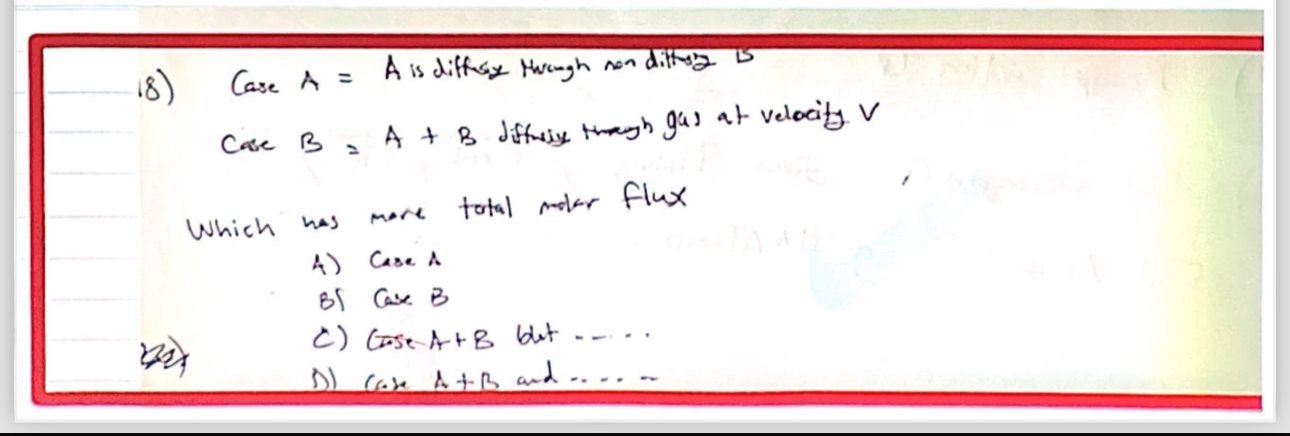 18) Case A = A is diffusing through non diffusing B
Case B = A + B diffusing through gas at velocity V
Which has more total molar flux
A) Case A
B) Case B
C) Case A + B but -----.
D) Case A + B and -----